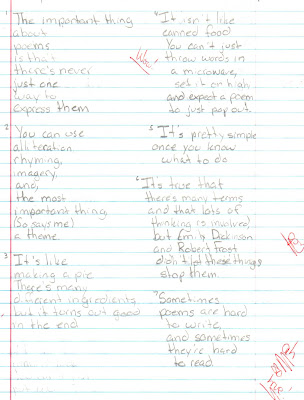 1 The important thing
about
poems
is that
there's never
just one
way to
express them
2 You can use
alliteration
rhyming,
imagery,
and,
the most
important thing
(So says me)
a theme.
3 It's like
making a pie
There's many
different ingredients
but it turns out good
in the end
4 It isn't like
canned food
You can't just
throw words in
a microwave,
set it on high
and expect a poem
to just pop out.
Wow
5 It's pretty simple
once you know
what to do
6 It's true that
there's many terms
and that lots of
thinking is involved
but Emily Dickinson
and Robert Frost
don't let these things
stop them.
7 Sometimes
poems are hard
to write,
and sometimes
they're hard
to read.